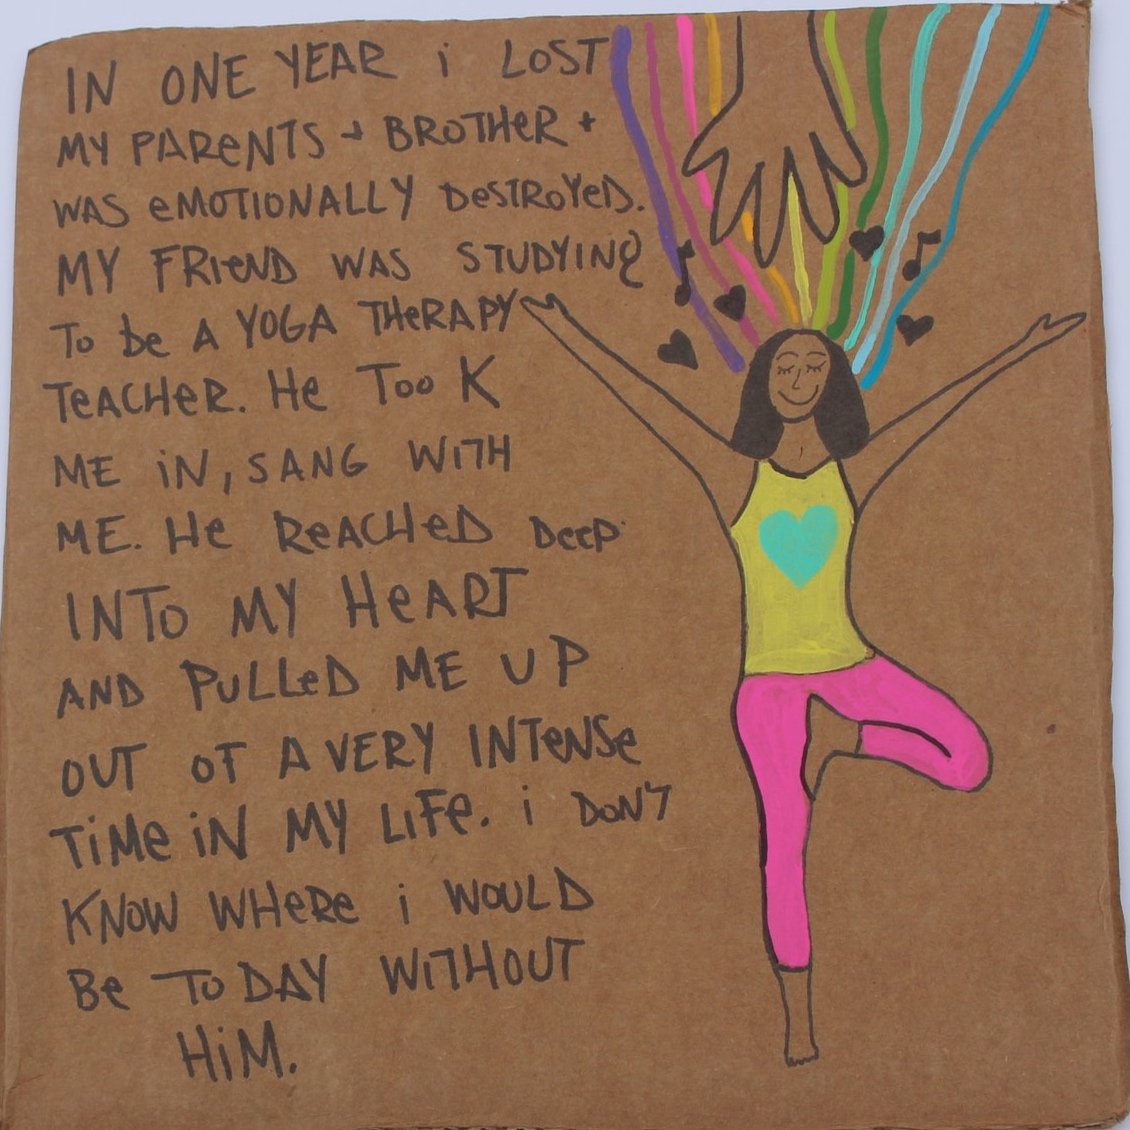 IN ONE YEAR i LOST
MY PAReNTS + BROTHeR +
WAS eMOTIONALLY DeSTROYeD.
MY FRIeND WAS STUDYING
To be A YOGA THeRAPY
TeACHeR. He Took
ME iN, SANG WITH
ME. He ReACHeD Deep
INTo MY HeART
AND PULLeD ME UP
OUT OF A VERY INTeNSe
TiMe iN MY LiFe. i DON'T
KNOW WHeRe i WOULD
Be TODAY WiTHOUT
HiM.